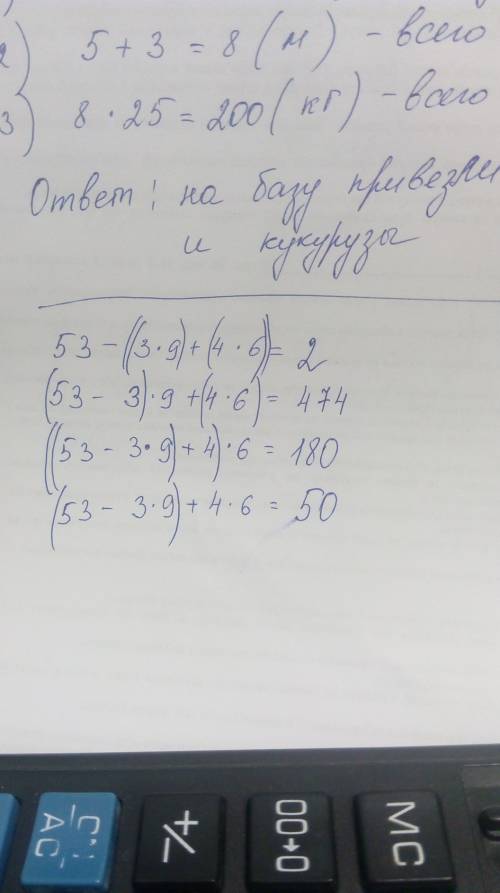 2) 5 + 3 = 8 ( м ) - всего
3) 8 · 25 = 200 ( кг ) - всего
Ответ: на базу привезли
и кукурузы
53 - ((3·9) + (4·6)) = 2
(53 - 3)·9 + (4·6) = 474
((53 - 3·9) + 4)·6 = 180
(53 - 3·9) + 4·6 = 50
C·CE AC +/- 00→0 MC